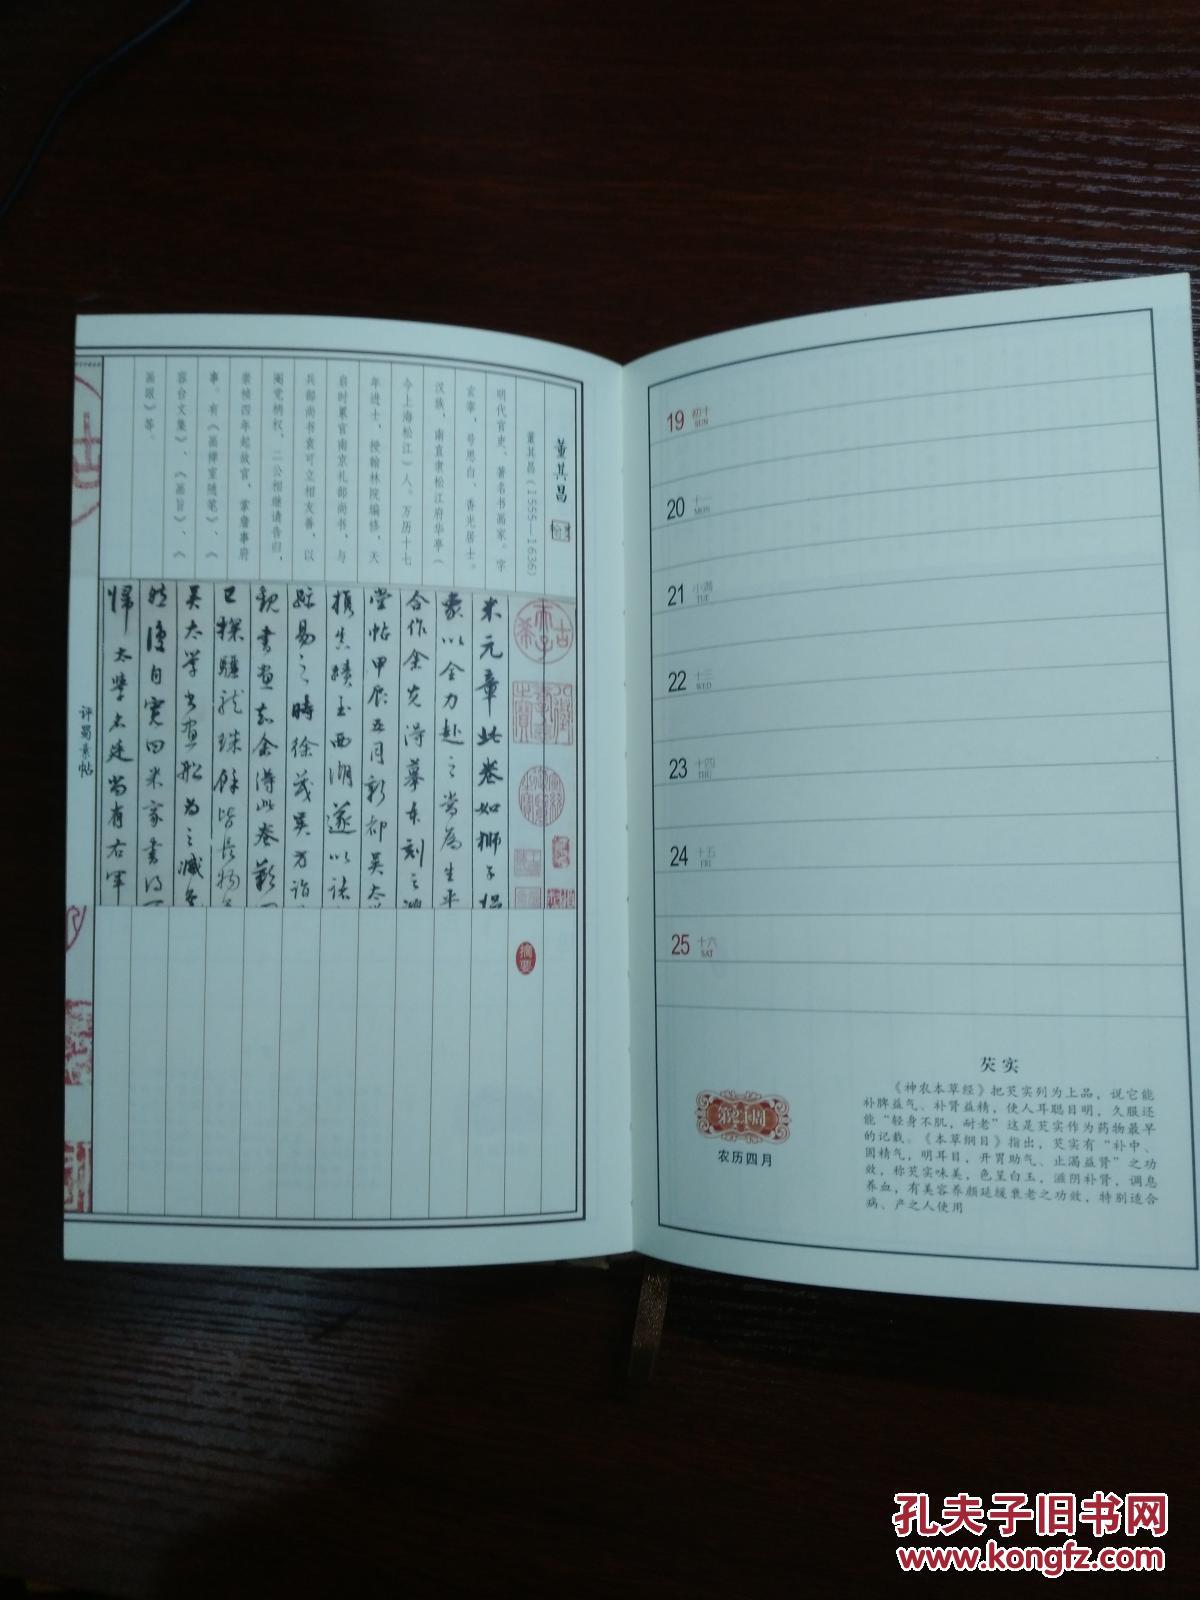 董其昌
董其昌（1555—1636）
明代官吏、著名书画家。字
玄宰，号思白、香光居士。
汉族，南直隶松江府华亭（
今上海松江）人。万历十七
年进士，授翰林院编修，天
启时累官南京礼部尚书，与
兵部尚书袁可立相友善，以
阉党柄权，二公相继请告归，
崇祯四年起故官，掌詹事府
事。有《画禅室随笔》、《
容台文集》、《画旨》、《
画眼》等。
米元章此卷如狮子捉
象以全力赴之当为生平
合作余先得摹本刻之鸿
堂帖甲辰五月新都吴太学
携真迹至西湖遂以诸
迹易之时徐茂吴方诣
观书画知余得此卷叹
已探骊龙珠余皆长物矣
吴太学书画船为之减色
然后自宽曰米家书得
归太学太廷尚有右军
摘要
评蜀素帖
19 初十 SUN
20 十一 MON
21 小满 TUE
22 十三 WED
23 十四 THU
24 十五 FRI
25 十六 SAT
农历四月
芡实
《神农本草经》把芡实列为上品，说它能
补脾益气、补肾益精，使人耳聪目明，久服还
能“轻身不肌，耐老”这是芡实作为药物最早
的记载。《本草纲目》指出，芡实有“补中、
固精气，明耳目，开胃助气、止渴益肾”之功
效，称芡实味美，色呈白玉，滋阴补肾，调息
养血，有美容养颜延缓衰老之功效，特别适合
病、产之人使用
孔夫子旧书网
www.kongfz.com